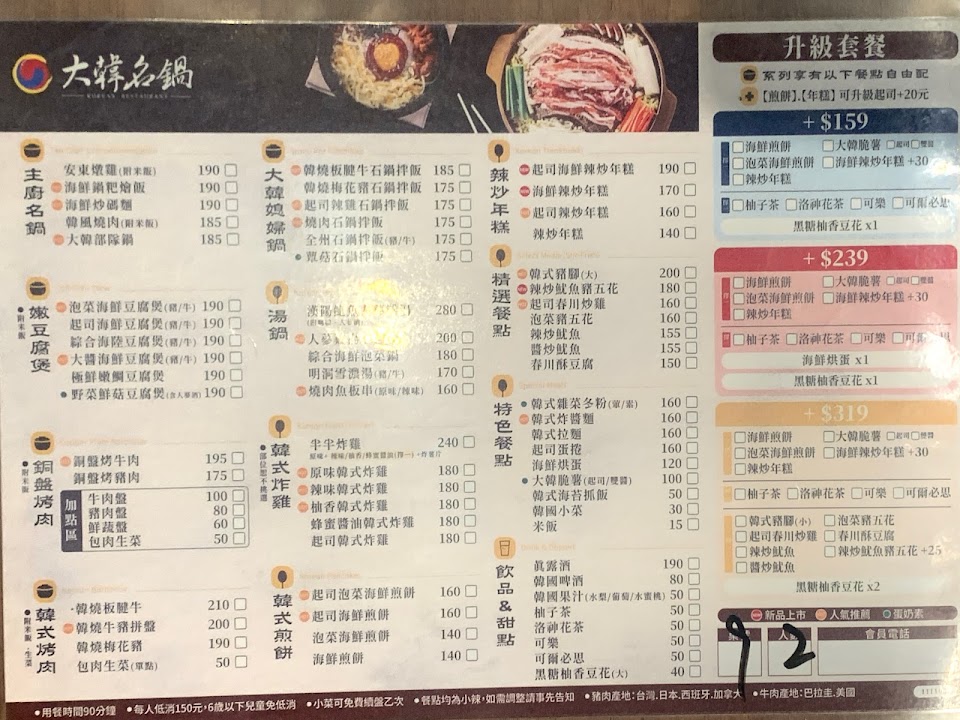 大韓名鍋
主廚名鍋
安東燉雞(附米飯) 190
海鮮鍋粑燴飯 190
海鮮炒碼麵 190
韓風燒肉(附米飯) 185
大韓部隊鍋 185
嫩豆腐煲
●附米飯
泡菜海鮮豆腐煲(豬/牛) 190
起司海鮮豆腐煲(豬/牛) 190
綜合海陸豆腐煲(豬/牛) 190
大醬海鮮豆腐煲(豬/牛) 190
極鮮嫩鯛豆腐煲 190
野菜鮮菇豆腐煲(含人蔘酒) 190
銅盤烤肉
●附米飯
銅盤烤牛肉 195
銅盤烤豬肉 175
加點區
牛肉盤 100
豬肉盤 80
鮮蔬盤 60
包肉生菜 50
韓式烤肉
●附米飯、生菜
韓燒板腱牛 210
韓燒牛豬拼盤 200
韓燒梅花豬 190
包肉生菜(單點) 50
大韓媳婦鍋
韓燒板腱牛石鍋拌飯 185
韓燒梅花豬石鍋拌飯 175
起司辣雞石鍋拌飯 175
燒肉石鍋拌飯 175
全州石鍋拌飯(豬/牛) 175
蕈菇石鍋拌飯 175
湯鍋
280
200
綜合海鮮泡菜鍋 180
明洞雪濃湯(豬/牛) 170
燒肉魚板串(原味/辣味) 160
韓式炸雞
●部位恕不挑選
半半炸雞 240
原味韓式炸雞 180
辣味韓式炸雞 180
柚香韓式炸雞 180
蜂蜜醬油韓式炸雞 180
起司韓式炸雞 180
韓式煎餅
起司泡菜海鮮煎餅 160
起司海鮮煎餅 160
泡菜海鮮煎餅 140
海鮮煎餅 140
辣炒年糕
起司海鮮辣炒年糕 190
海鮮辣炒年糕 170
起司辣炒年糕 160
辣炒年糕 140
精選餐點
韓式豬腳(大) 200
辣炒魷魚豬五花 180
起司春川炒雞 160
泡菜豬五花 160
辣炒魷魚 155
醬炒魷魚 155
春川酥豆腐 150
特色餐點
韓式雜菜冬粉(葷/素) 160
韓式炸醬麵 160
韓式拉麵 160
起司蛋捲 160
海鮮烘蛋 120
大韓脆薯(起司/雙醬) 100
韓式海苔抓飯 50
韓國小菜 30
米飯 15
飲品&甜點
真露酒 190
韓國啤酒 80
韓國果汁(水梨/葡萄/水蜜桃) 50
柚子茶 50
洛神花茶 50
可樂 50
可爾必思 50
黑糖柚香豆花(大) 40
升級套餐
系列享有以下餐點自由配
【煎餅】.【年糕】可升級起司+20元
+ $159
海鮮煎餅 大韓脆薯 起司 雙醬
泡菜海鮮煎餅 海鮮辣炒年糕 +30
辣炒年糕
柚子茶 洛神花茶 可樂 可爾必思
黑糖柚香豆花 x1
+ $239
海鮮煎餅 大韓脆薯 起司 雙醬
泡菜海鮮煎餅 海鮮辣炒年糕 +30
辣炒年糕
柚子茶 洛神花茶 可樂
海鮮烘蛋 x1
黑糖柚香豆花 x1
+ $319
海鮮煎餅 大韓脆薯 起司 雙醬
泡菜海鮮煎餅 海鮮辣炒年糕 +30
辣炒年糕
柚子茶 洛神花茶 可樂 可爾必思
韓式豬腳(小) 泡菜豬五花
起司春川炒雞 春川酥豆腐
辣炒魷魚 辣炒魷魚豬五花 +25
醬炒魷魚
黑糖柚香豆花 x2
新品上市 人氣推薦 蛋奶素
會員電話
9 2
●用餐時間90分鐘 ●每人低消150元,6歲以下兒童免低消 ●小菜可免費續盤乙次 ●餐點均為小辣,如需調整請事先告知 ●豬肉產地:台灣.日本.西班牙.加拿大 ●牛肉產地:巴拉圭.美國